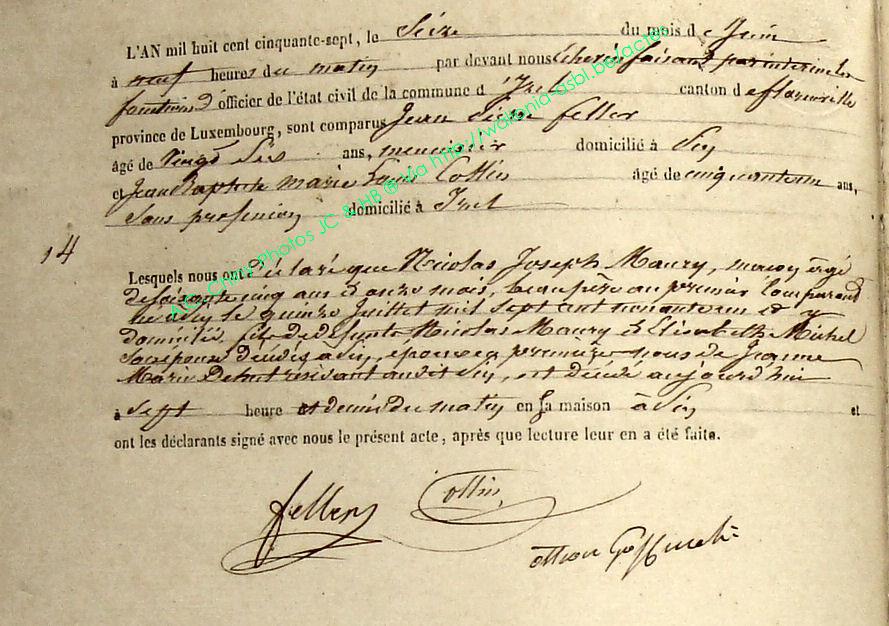 L'AN mil huit cent cinquante-sept, le Seize du mois de Juin
à neuf heures du matin par devant nous Echevin faisant par interim les
fonctions d'officier de l'état civil de la commune d'Izel canton de florenville
province de Luxembourg, sont comparus Jean feller
âgé de vingt Six ans, menuisier domicilié à
et Jean Baptiste marie Louis Collin âgé de cinquante un ans,
Sans profession domicilié à Izel
14
Lesquels nous ont déclaré que Nicolas Joseph Maury, maçon âgé
de soixante cinq ans et onze mois, beau père au premier Comparant
né le quinze Juillet mil sept cent nonante un et y
domicilié, fils de defunts Nicolas Maury et Elisabeth Michel
Son epouse décédés epoux en premières noces de Jeanne
Marie est décédé aujourd'hui
à Sept heure et demie du matin en Sa maison à et
ont les déclarants signé avec nous le présent acte, après que lecture leur en a été faite.
feller Collin
AIG Chiny Photos JC & HB @ via http://wallonia-asbl.be/actes